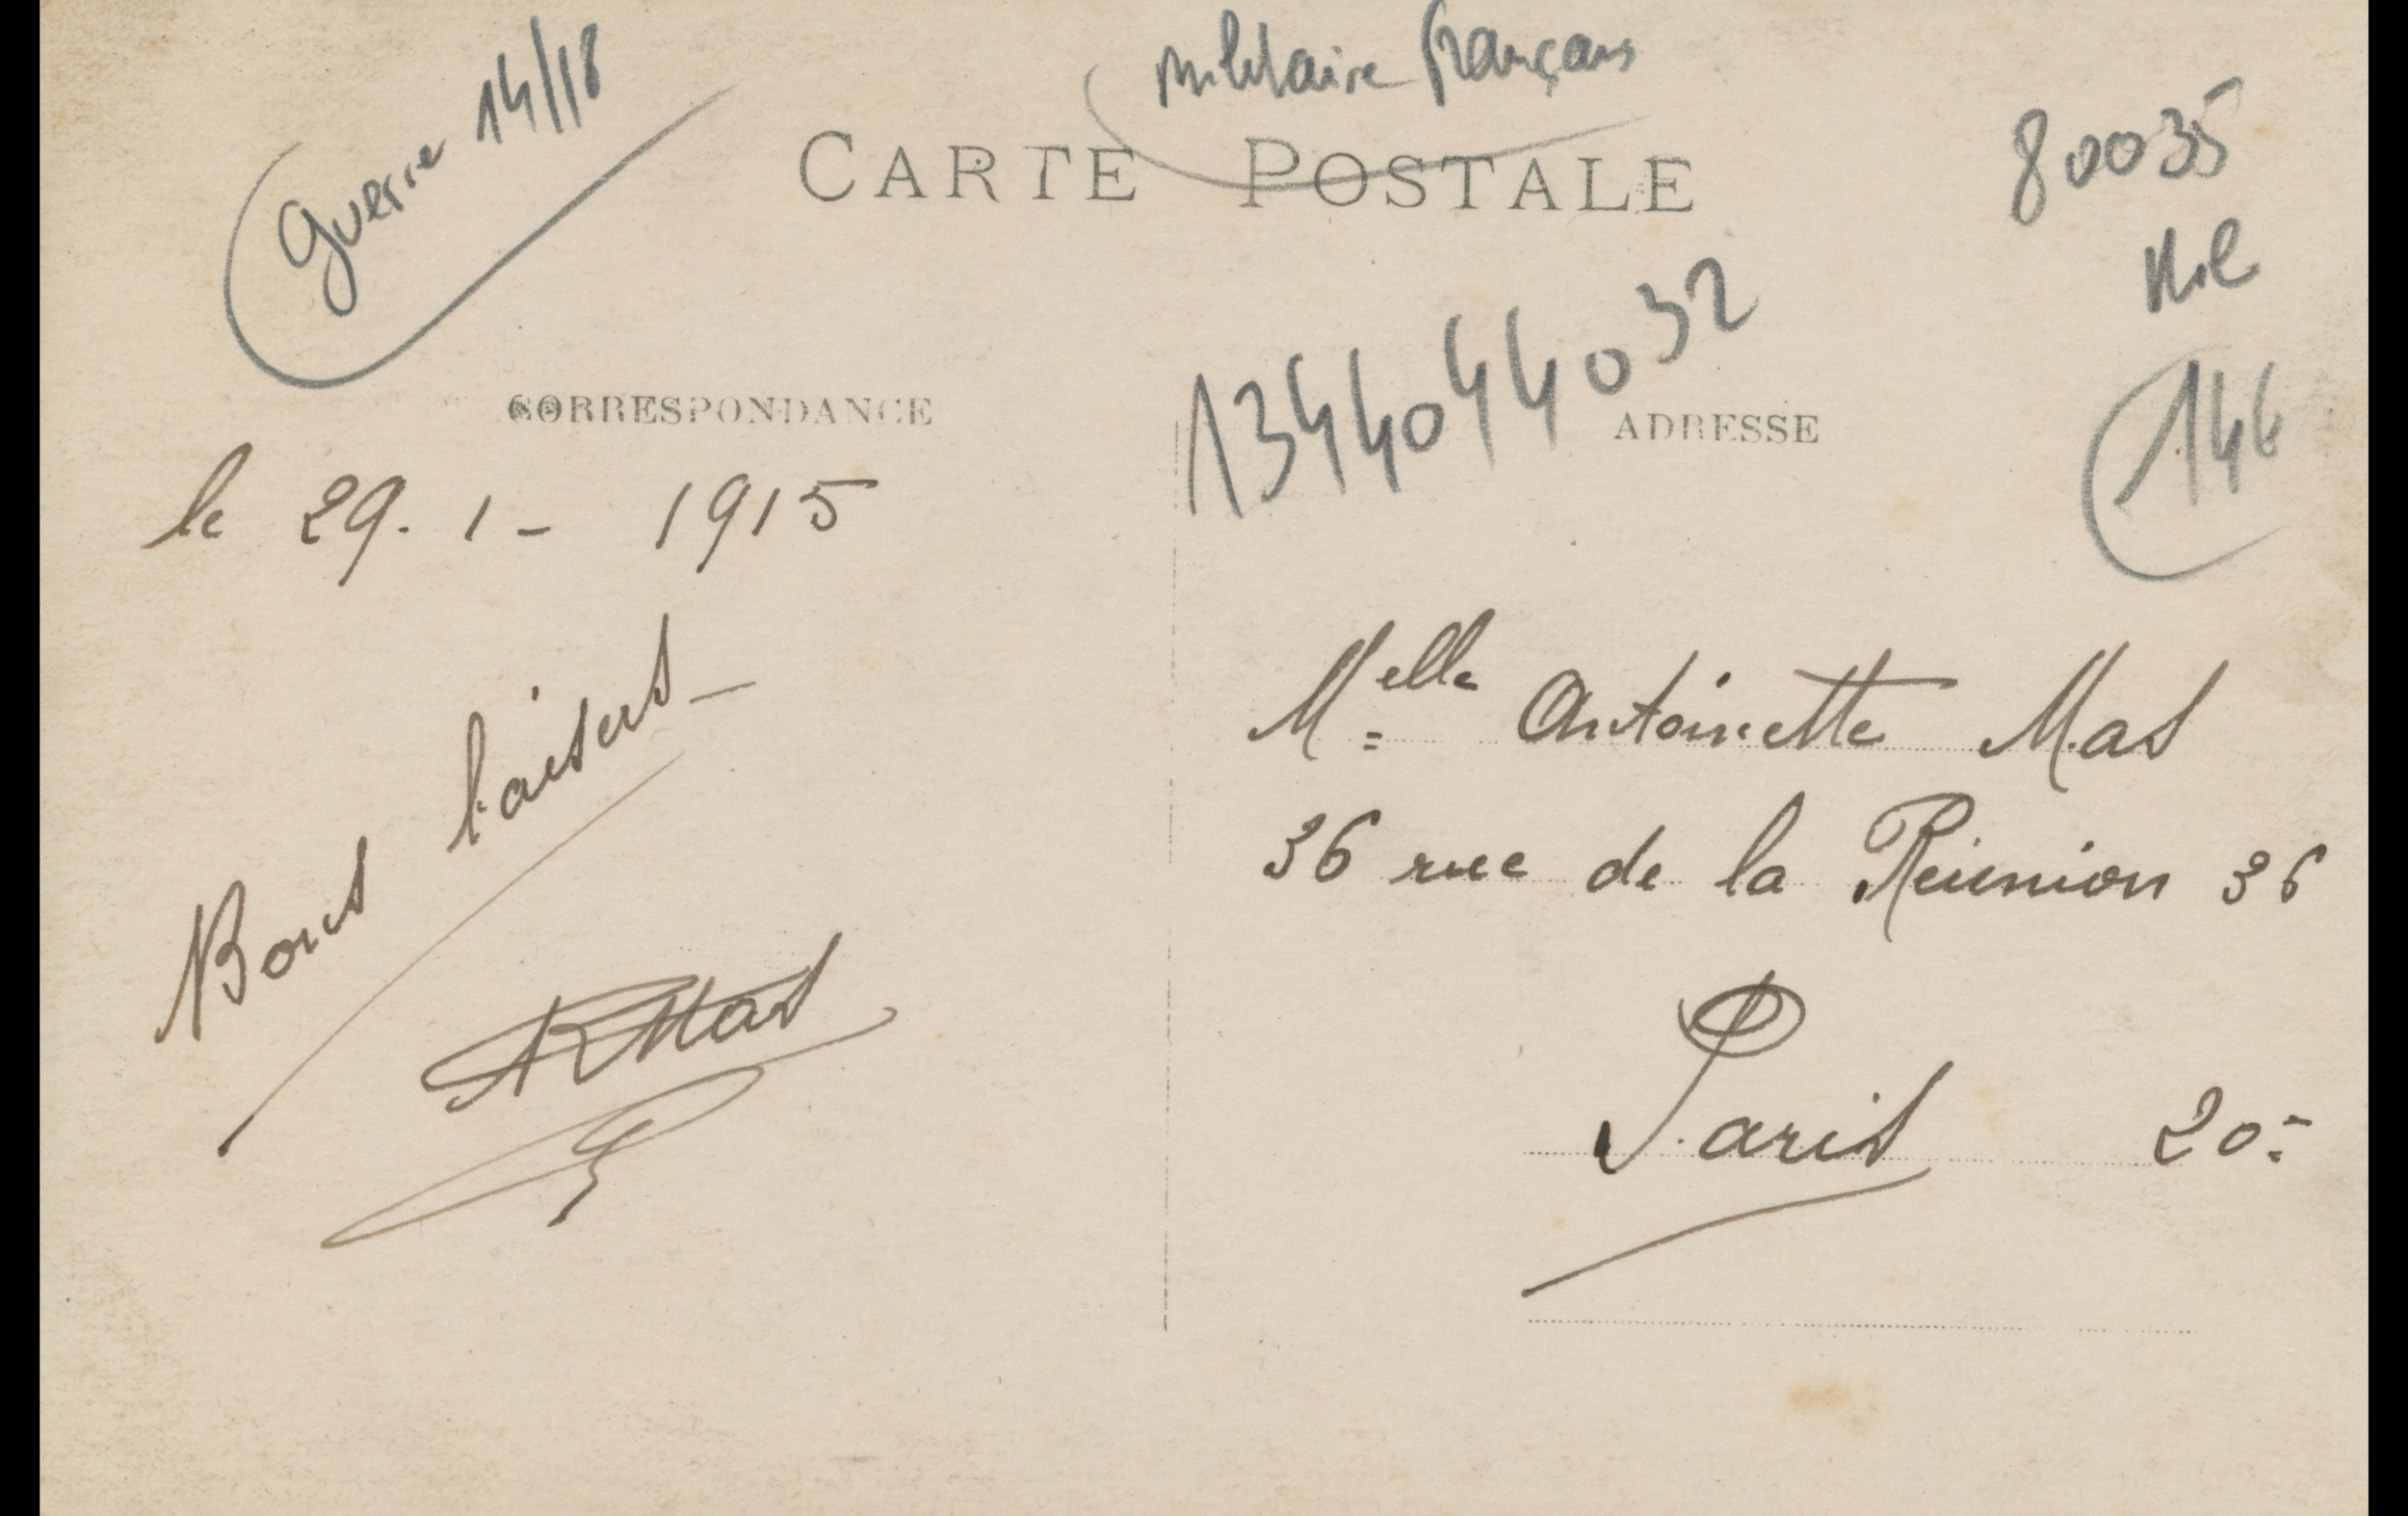 Guerre 14/18
militaire français
CARTE POSTALE
80035
1344044032
146
CORRESPONDANCE
ADRESSE
le 29. 1 - 1915
Bons baisers -
Mas
Melle Antoinette Mas
36 rue de la Réunion 36
Paris 20e